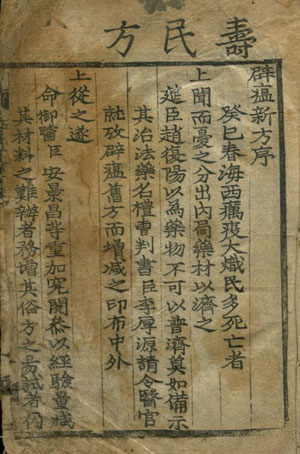 壽民方
辟瘟新方序
癸巳春海西癘疫大熾民多死亡者
上聞而憂之分出內局藥材以濟之
筵臣趙復陽以爲藥物不可以普濟莫如備示
其治法藥名禮曹判書臣李厚源請令醫官
就攷辟瘟舊方而增減之印布中外
上從之遂
命御醫臣安景昌等重加究閱參以經驗量減
其材料之難辦者務增其俗方之易試者仍